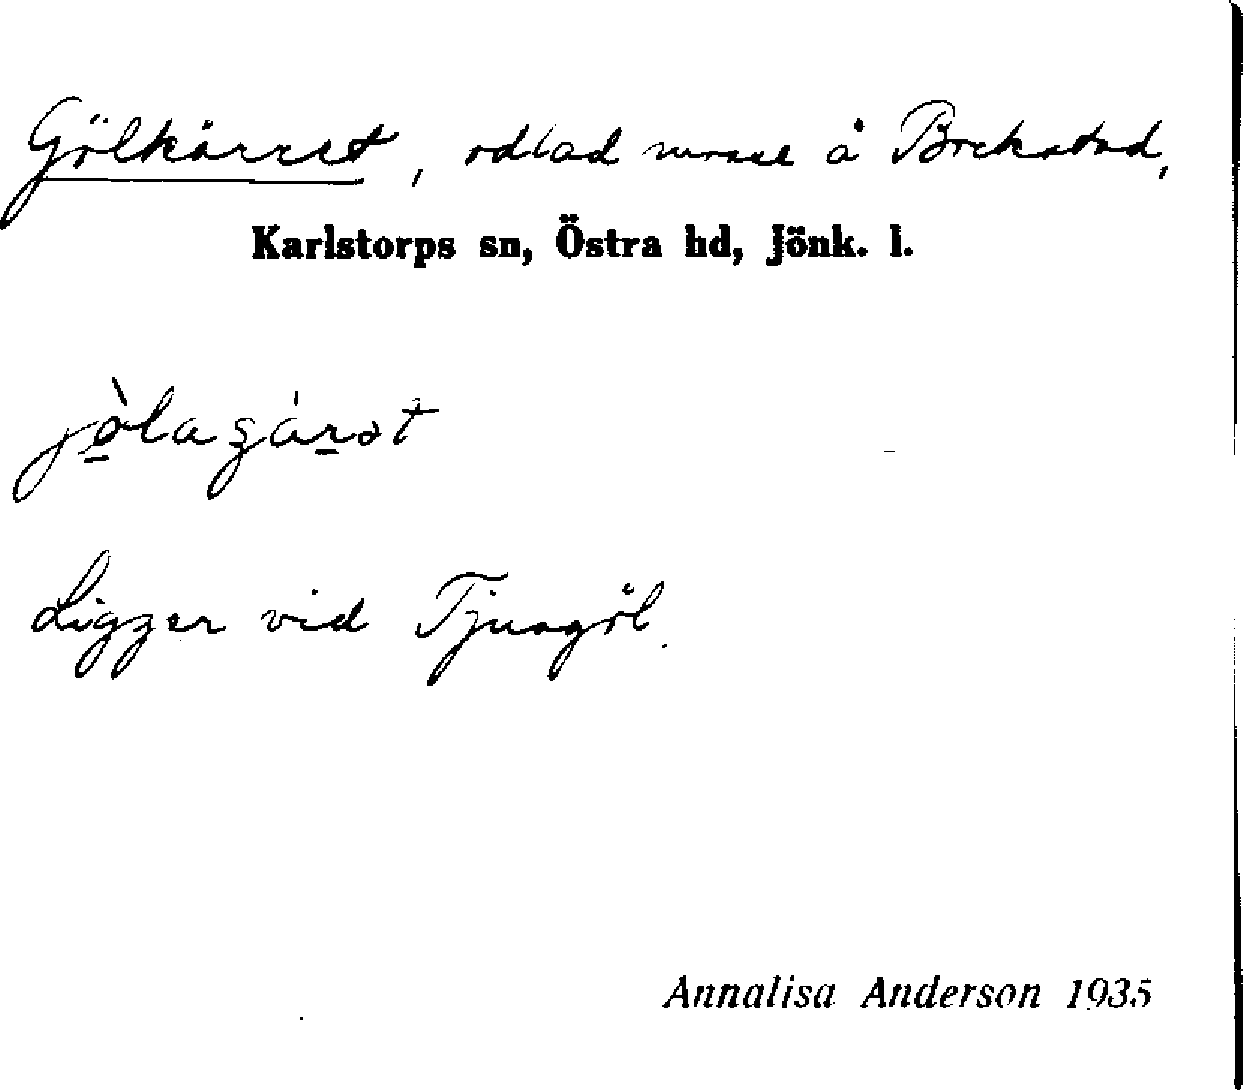 Gölkärret, odlad mosse å Bockstad,
Karlstorps sn, Östra hd, Jönk. l.
Ligger vid Tjusgöl.
Annalisa Anderson 1935